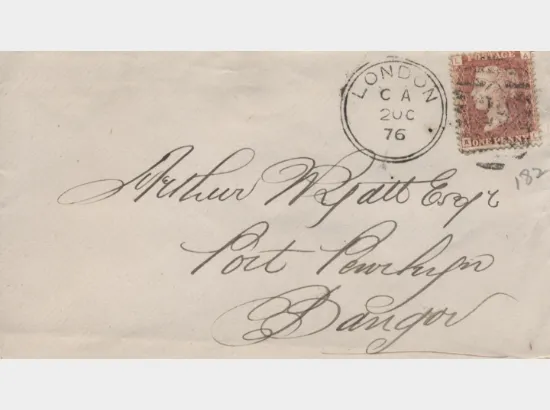 LONDON
CA
2 OC
76
POSTAGE
ONE PENNY
182
Arthur Wyatt Esqr
Port Penrhyn
Bangor